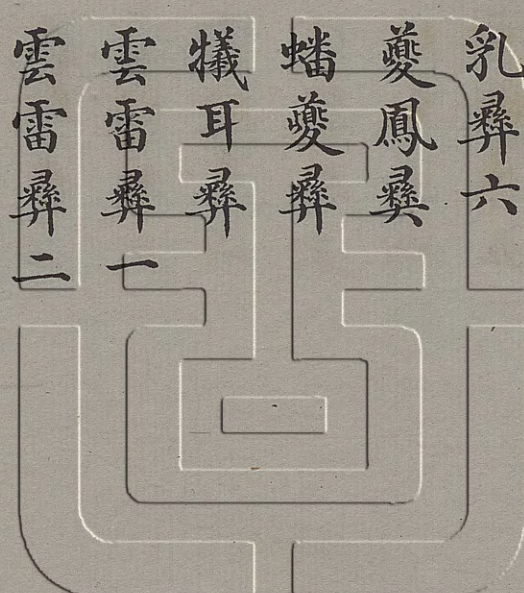 乳彝六
夔鳳彝
蟠夔彝
犧耳彝
雲雷彝一
雲雷彝二